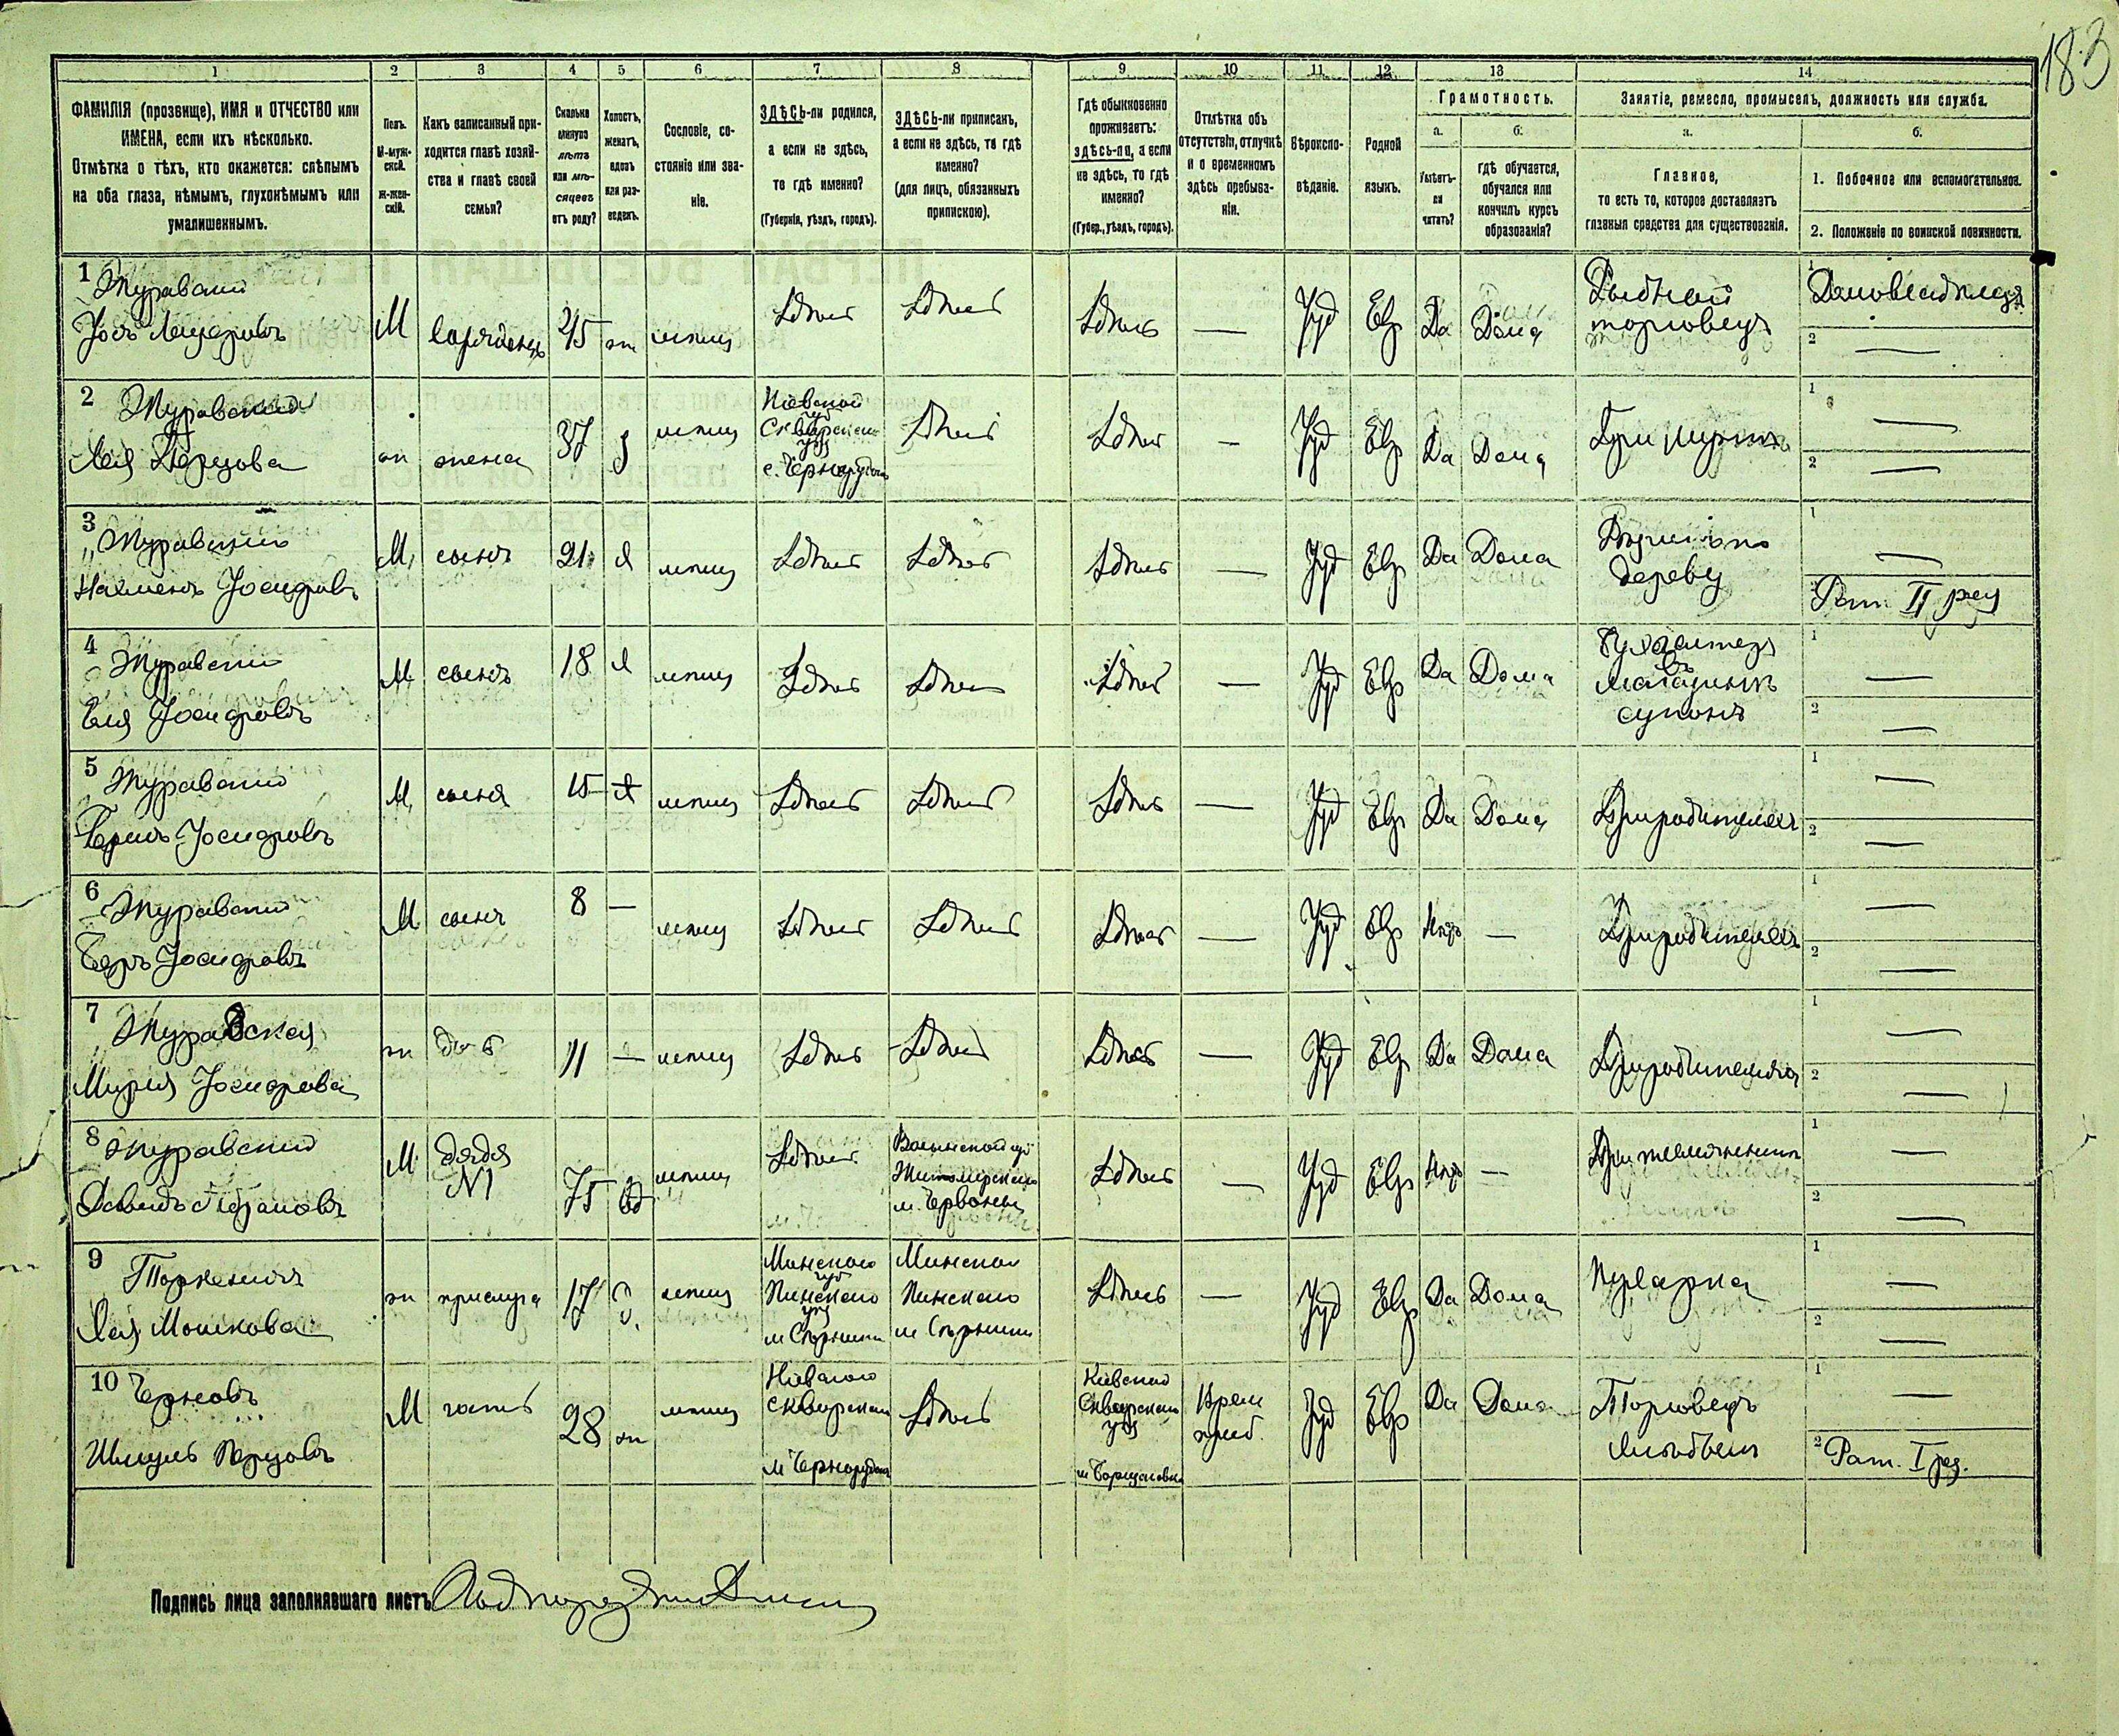 183
1 2 3 4 5 6 7 8 9 10 11 12 13 14
ФАМИЛІЯ (прозвище), ИМЯ и ОТЧЕСТВО или
ИМЕНА, если ихъ нѣсколько.
Отмѣтка о тѣхъ, кто окажется: слѣпымъ
на оба глаза, нѣмымъ, глухонѣмымъ или
умалишеннымъ.
Полъ.
М-муж-
ской.
ж-жен-
скій.
Какъ записанный при-
ходится главѣ хозяй-
ства и главѣ своей
семьи?
Сколько
минуло
лѣтъ
или мѣ-
сяцевъ
отъ роду?
Холостъ,
женатъ,
вдовъ
или раз-
веденъ.
Сословіе, со-
стояніе или зва-
ніе.
ЗДѢСЬ-ли родился,
а если не здѣсь,
то гдѣ именно?
(Губернія, уѣздъ, городъ).
ЗДѢСЬ-ли приписанъ,
а если не здѣсь, то гдѣ
именно?
(для лицъ, обязанныхъ
припискою).
Гдѣ обыкновенно
проживаетъ:
здѣсь-ли, а если
не здѣсь, то гдѣ
именно?
(Губер., уѣздъ, городъ).
Отмѣтка объ
отсутствіи, отлучкѣ
и о временномъ
здѣсь пребыва-
ніи.
Вѣроиспо-
вѣданіе.
Родной
языкъ.
Грамотность.
а.
Умѣетъ-
ли
читать?
б.
гдѣ обучается,
обучался или
кончилъ курсъ
образованія?
Занятіе, ремесло, промыселъ, должность или служба.
а.
Главное,
то есть то, которое доставляетъ
главныя средства для существованія.
б.
1. Побочное или вспомогательное.
2. Положеніе по воинской повинности.
1 Журавскій
М 45 ж мѣщ Здѣсь Здѣсь Здѣсь — Іуд Евр Да Дома
Рыбный
торговецъ
1 Домовладѣлецъ
2 —
2 Журавская
Лея Перцова
ж жена 37 з мѣщ
Кіевской
губ
Сквирскаго
уѣз
с. Чернорудка
Здѣсь Здѣсь — Іуд Евр Да Дома При мужѣ
1 —
2 —
3 Журавскій
Нахманъ Іосифовъ
М сынъ 21 х мѣщ Здѣсь Здѣсь Здѣсь — Іуд Евр Да Дома
по
дереву
1 —
2 Рат. II раз
4 Журавскій
Іосифовъ
М сынъ 18 х мѣщ Здѣсь Здѣсь Здѣсь — Іуд Евр Да Дома
Бухгалтеръ
въ
магазинѣ
суконъ
1 —
2 —
5 Журавскій
Герш Іосифовъ
М сынъ 15 х мѣщ Здѣсь Здѣсь Здѣсь — Іуд Евр Да Дома При родителяхъ
1 —
2 —
6 Журавскій
Беръ Іосифовъ
М сынъ 8 — мѣщ Здѣсь Здѣсь Здѣсь — Іуд Евр Нѣтъ — При родителяхъ
1 —
2 —
7 Журавская
Іосифова
ж дочь 11 — мѣщ Здѣсь Здѣсь Здѣсь — Іуд Евр Да Дома При родителяхъ
1 —
2 —
8 Журавскій
Давидъ Абрамовъ
М дядя
№1
75 вд мѣщ Здѣсь
Волынской губ
Житомирскаго
м. Червоны
Здѣсь — Іуд Евр Нѣтъ — При племянникѣ
1 —
2 —
9
Лея Мошкова
ж прислуга 17 д. мѣщ
Минской
губ
Пинскаго
уѣз
Минской
Пинскаго
Здѣсь — Іуд Евр Да Дома Кухарка
1 —
2 —
10 Черновъ
Шмуль Перцовъ
М гость 28 ж мѣщ
Кіевской
Сквирскаго
м Чернорудка
Здѣсь
Кіевской
Сквирскаго
уѣз
Врем
преб.
Іуд Евр Да Дома
Торговецъ
хлѣбомъ
1 —
2 Рат. I раз.
Подпись лица заполнявшаго листъ